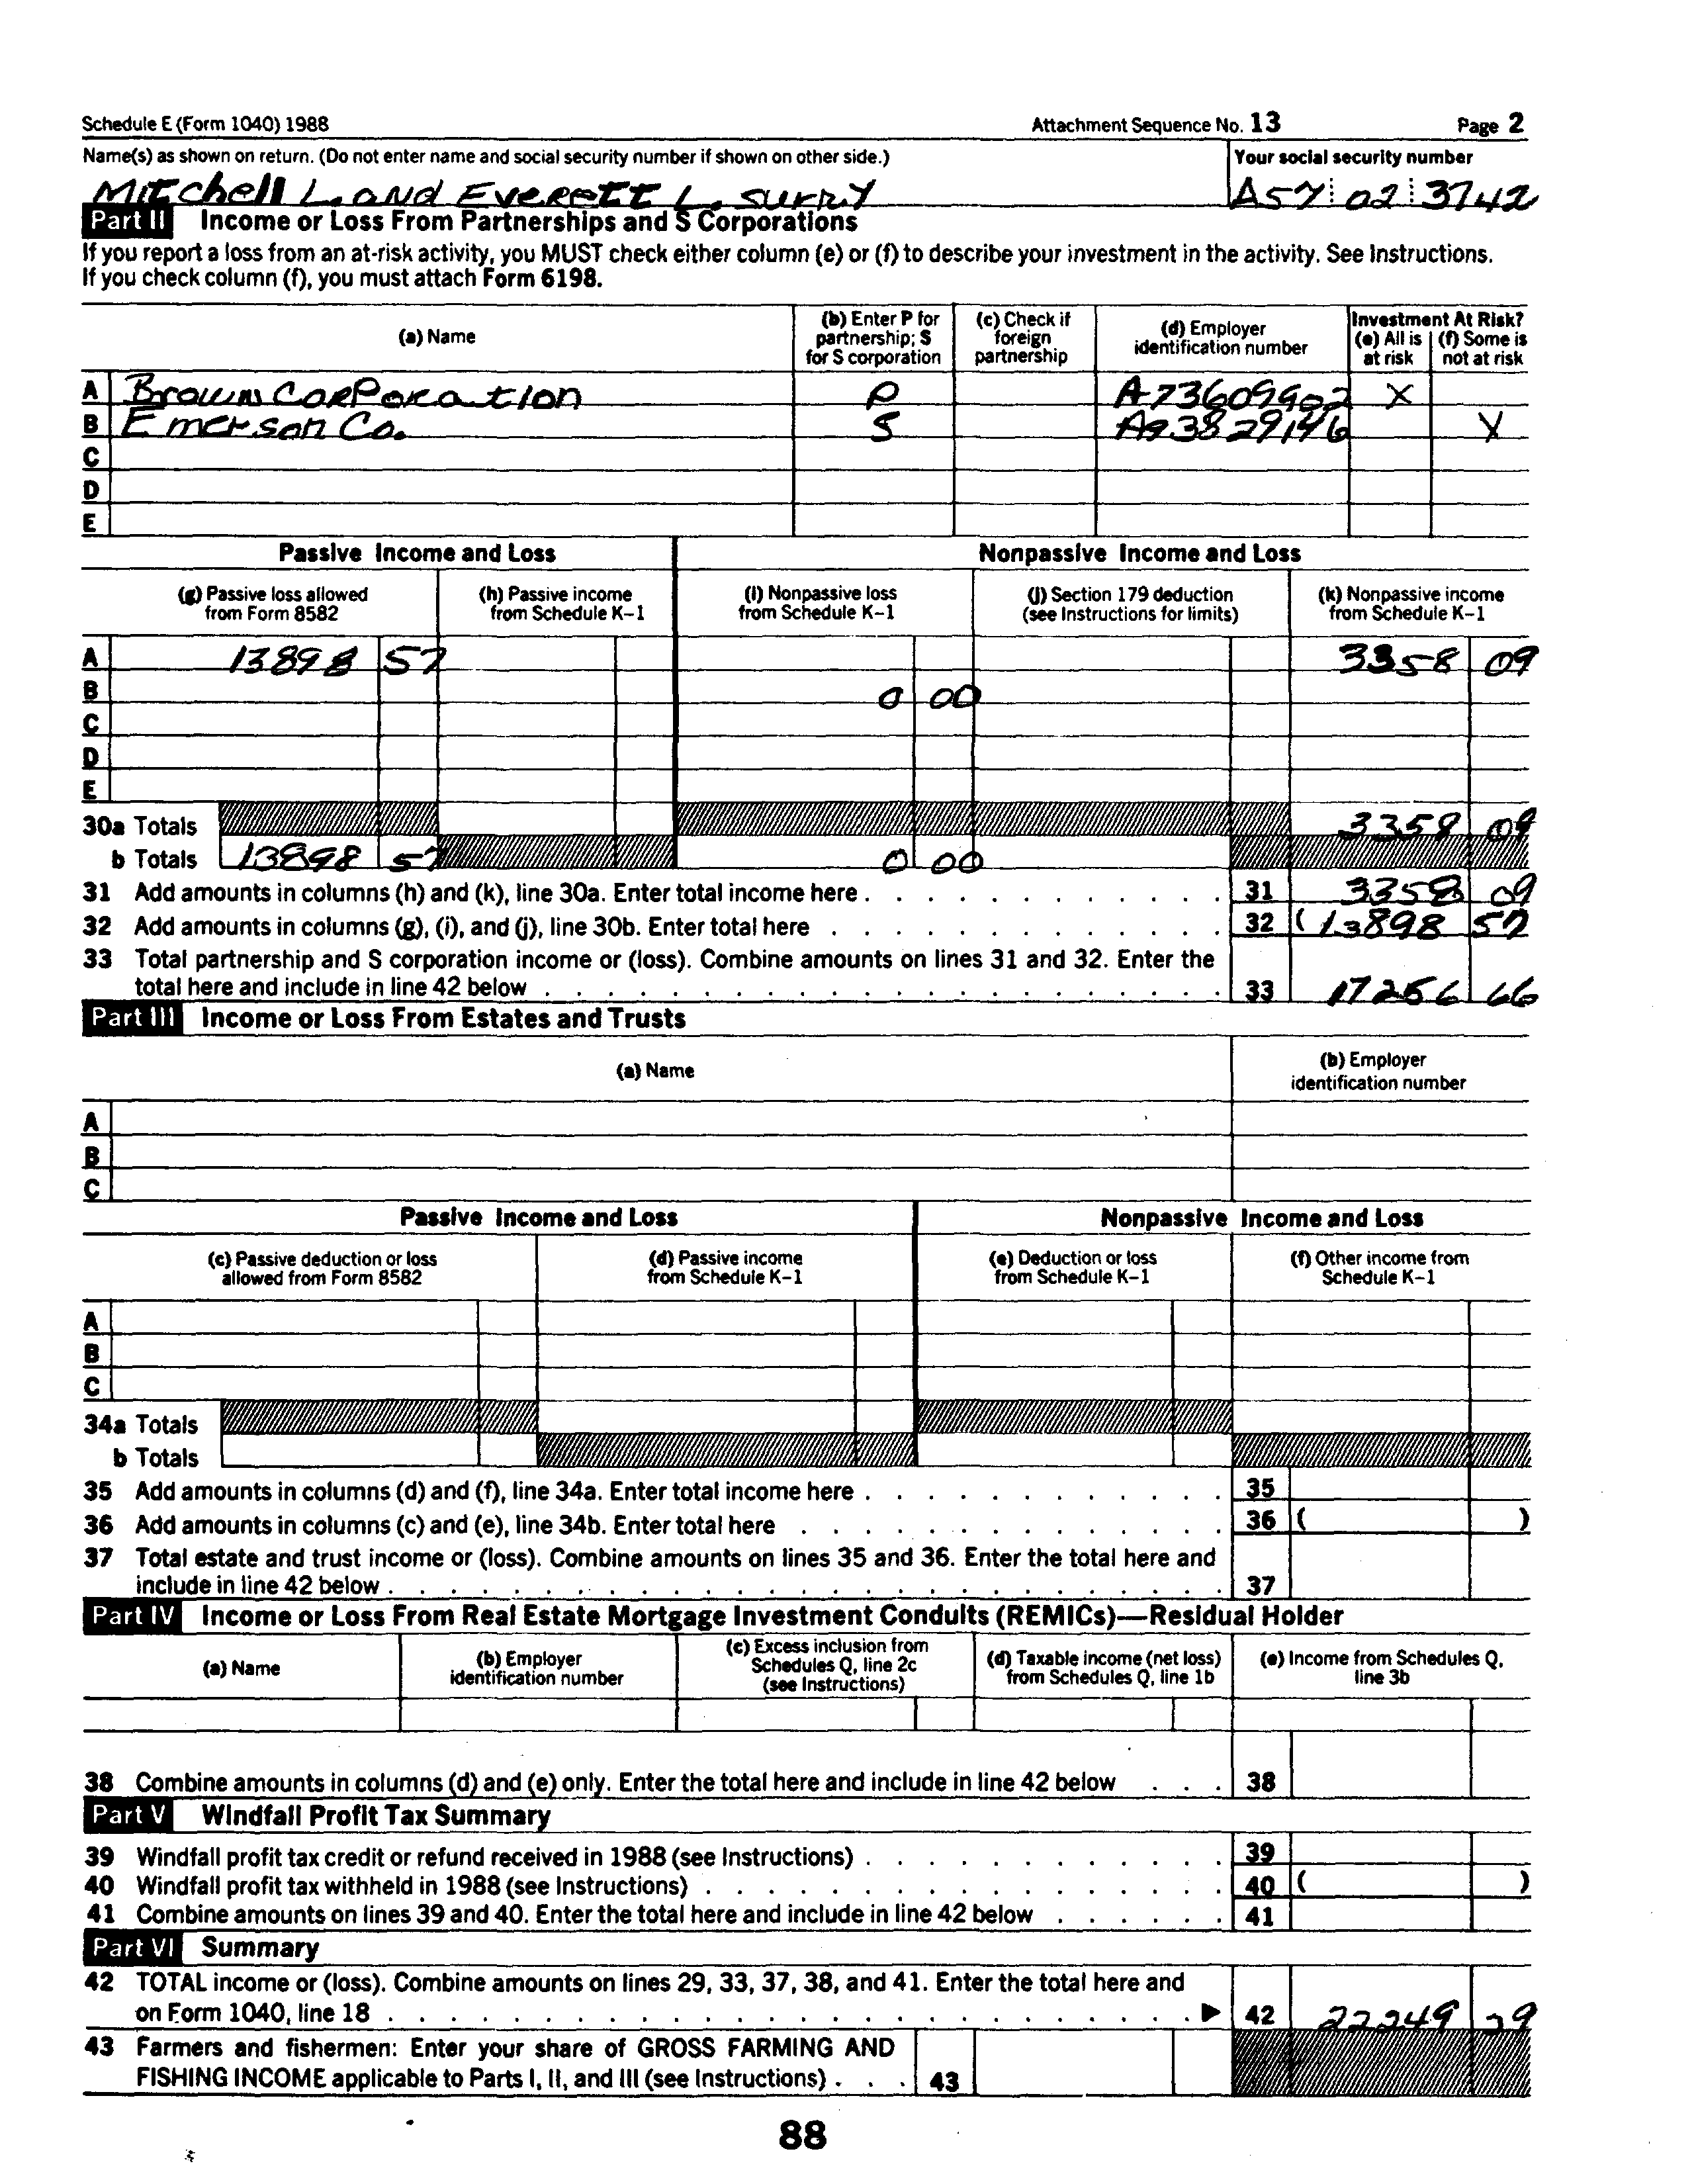 Schedule E (Form 1040) 1988 Attachment Sequence No. 13 Page 2
Name(s) as shown on return. (Do not enter name and social security number if shown on other side.) Your social security number
Mitchell L. and Everett L. Surry A57 02 3742
Part II Income or Loss From Partnerships and S Corporations
If you report a loss from an at-risk activity, you MUST check either column (e) or (f) to describe your investment in the activity. See Instructions.
If you check column (f), you must attach Form 6198.
(a) Name (b) Enter P for partnership; S for S corporation (c) Check if foreign partnership (d) Employer identification number Investment At Risk? (e) All is at risk (f) Some is not at risk
A Brown Corporation P A73609902 X
B Emerson Co. S A93829146 X
C
D
E
Passive Income and Loss Nonpassive Income and Loss
(g) Passive loss allowed from Form 8582 (h) Passive income from Schedule K-1 (i) Nonpassive loss from Schedule K-1 (j) Section 179 deduction (see Instructions for limits) (k) Nonpassive income from Schedule K-1
A 13898 57 3358 09
B 0 00
C
D
E
30a Totals 3358 09
b Totals 13898 57 0 00
31 Add amounts in columns (h) and (k), line 30a. Enter total income here . 31 3358 09
32 Add amounts in columns (g), (i), and (j), line 30b. Enter total here 32 ( 13898 57
33 Total partnership and S corporation income or (loss). Combine amounts on lines 31 and 32. Enter the
total here and include in line 42 below 33 17256 66
Part III Income or Loss From Estates and Trusts
(a) Name (b) Employer identification number
A
B
C
Passive Income and Loss Nonpassive Income and Loss
(c) Passive deduction or loss allowed from Form 8582 (d) Passive income from Schedule K-1 (e) Deduction or loss from Schedule K-1 (f) Other income from Schedule K-1
A
B
C
34a Totals
b Totals
35 Add amounts in columns (d) and (f), line 34a. Enter total income here . 35
36 Add amounts in columns (c) and (e), line 34b. Enter total here 36 ( )
37 Total estate and trust income or (loss). Combine amounts on lines 35 and 36. Enter the total here and
include in line 42 below . 37
Part IV Income or Loss From Real Estate Mortgage Investment Conduits (REMICs)—Residual Holder
(a) Name (b) Employer identification number (c) Excess inclusion from Schedules Q, line 2c (see Instructions) (d) Taxable income (net loss) from Schedules Q, line 1b (e) Income from Schedules Q, line 3b
38 Combine amounts in columns (d) and (e) only. Enter the total here and include in line 42 below 38
Part V Windfall Profit Tax Summary
39 Windfall profit tax credit or refund received in 1988 (see Instructions) . 39
40 Windfall profit tax withheld in 1988 (see Instructions) . 40 ( )
41 Combine amounts on lines 39 and 40. Enter the total here and include in line 42 below 41
Part VI Summary
42 TOTAL income or (loss). Combine amounts on lines 29, 33, 37, 38, and 41. Enter the total here and
on Form 1040, line 18 . ▶ 42 22249 29
43 Farmers and fishermen: Enter your share of GROSS FARMING AND
FISHING INCOME applicable to Parts I, II, and III (see Instructions) . 43
88